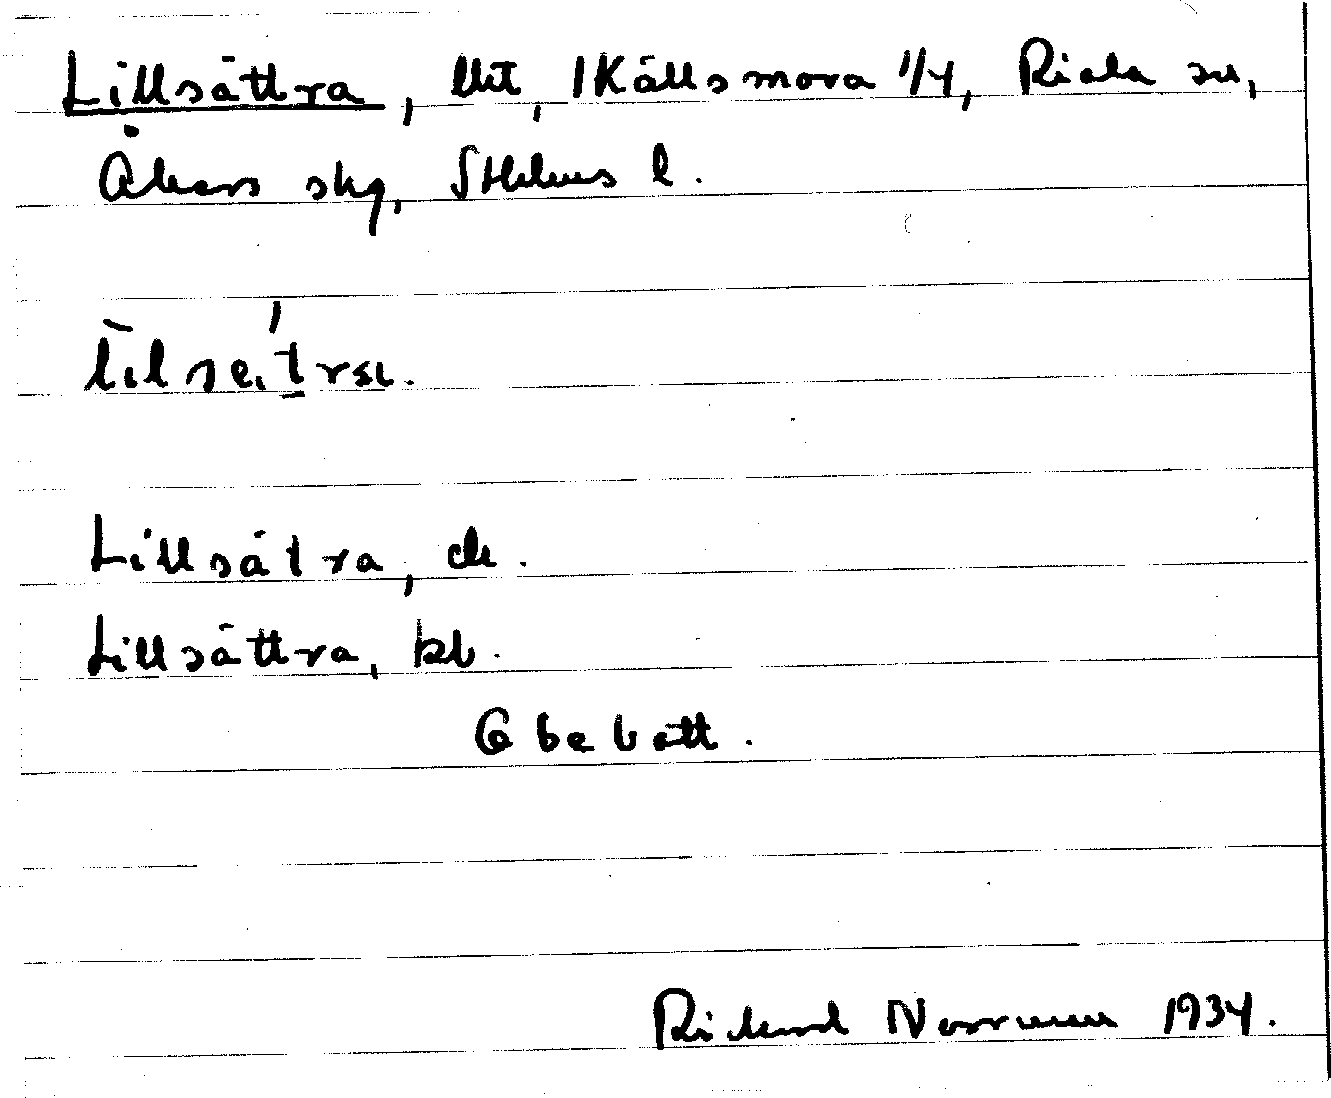 Lillsättra, lht, 1 Källsmora 1/4, Riala sn,
Åkers skg, Sthlms l.
Lillsätra, ek.
Lillsättra, kb.
Obebott.
Rickard Norrman 1934.